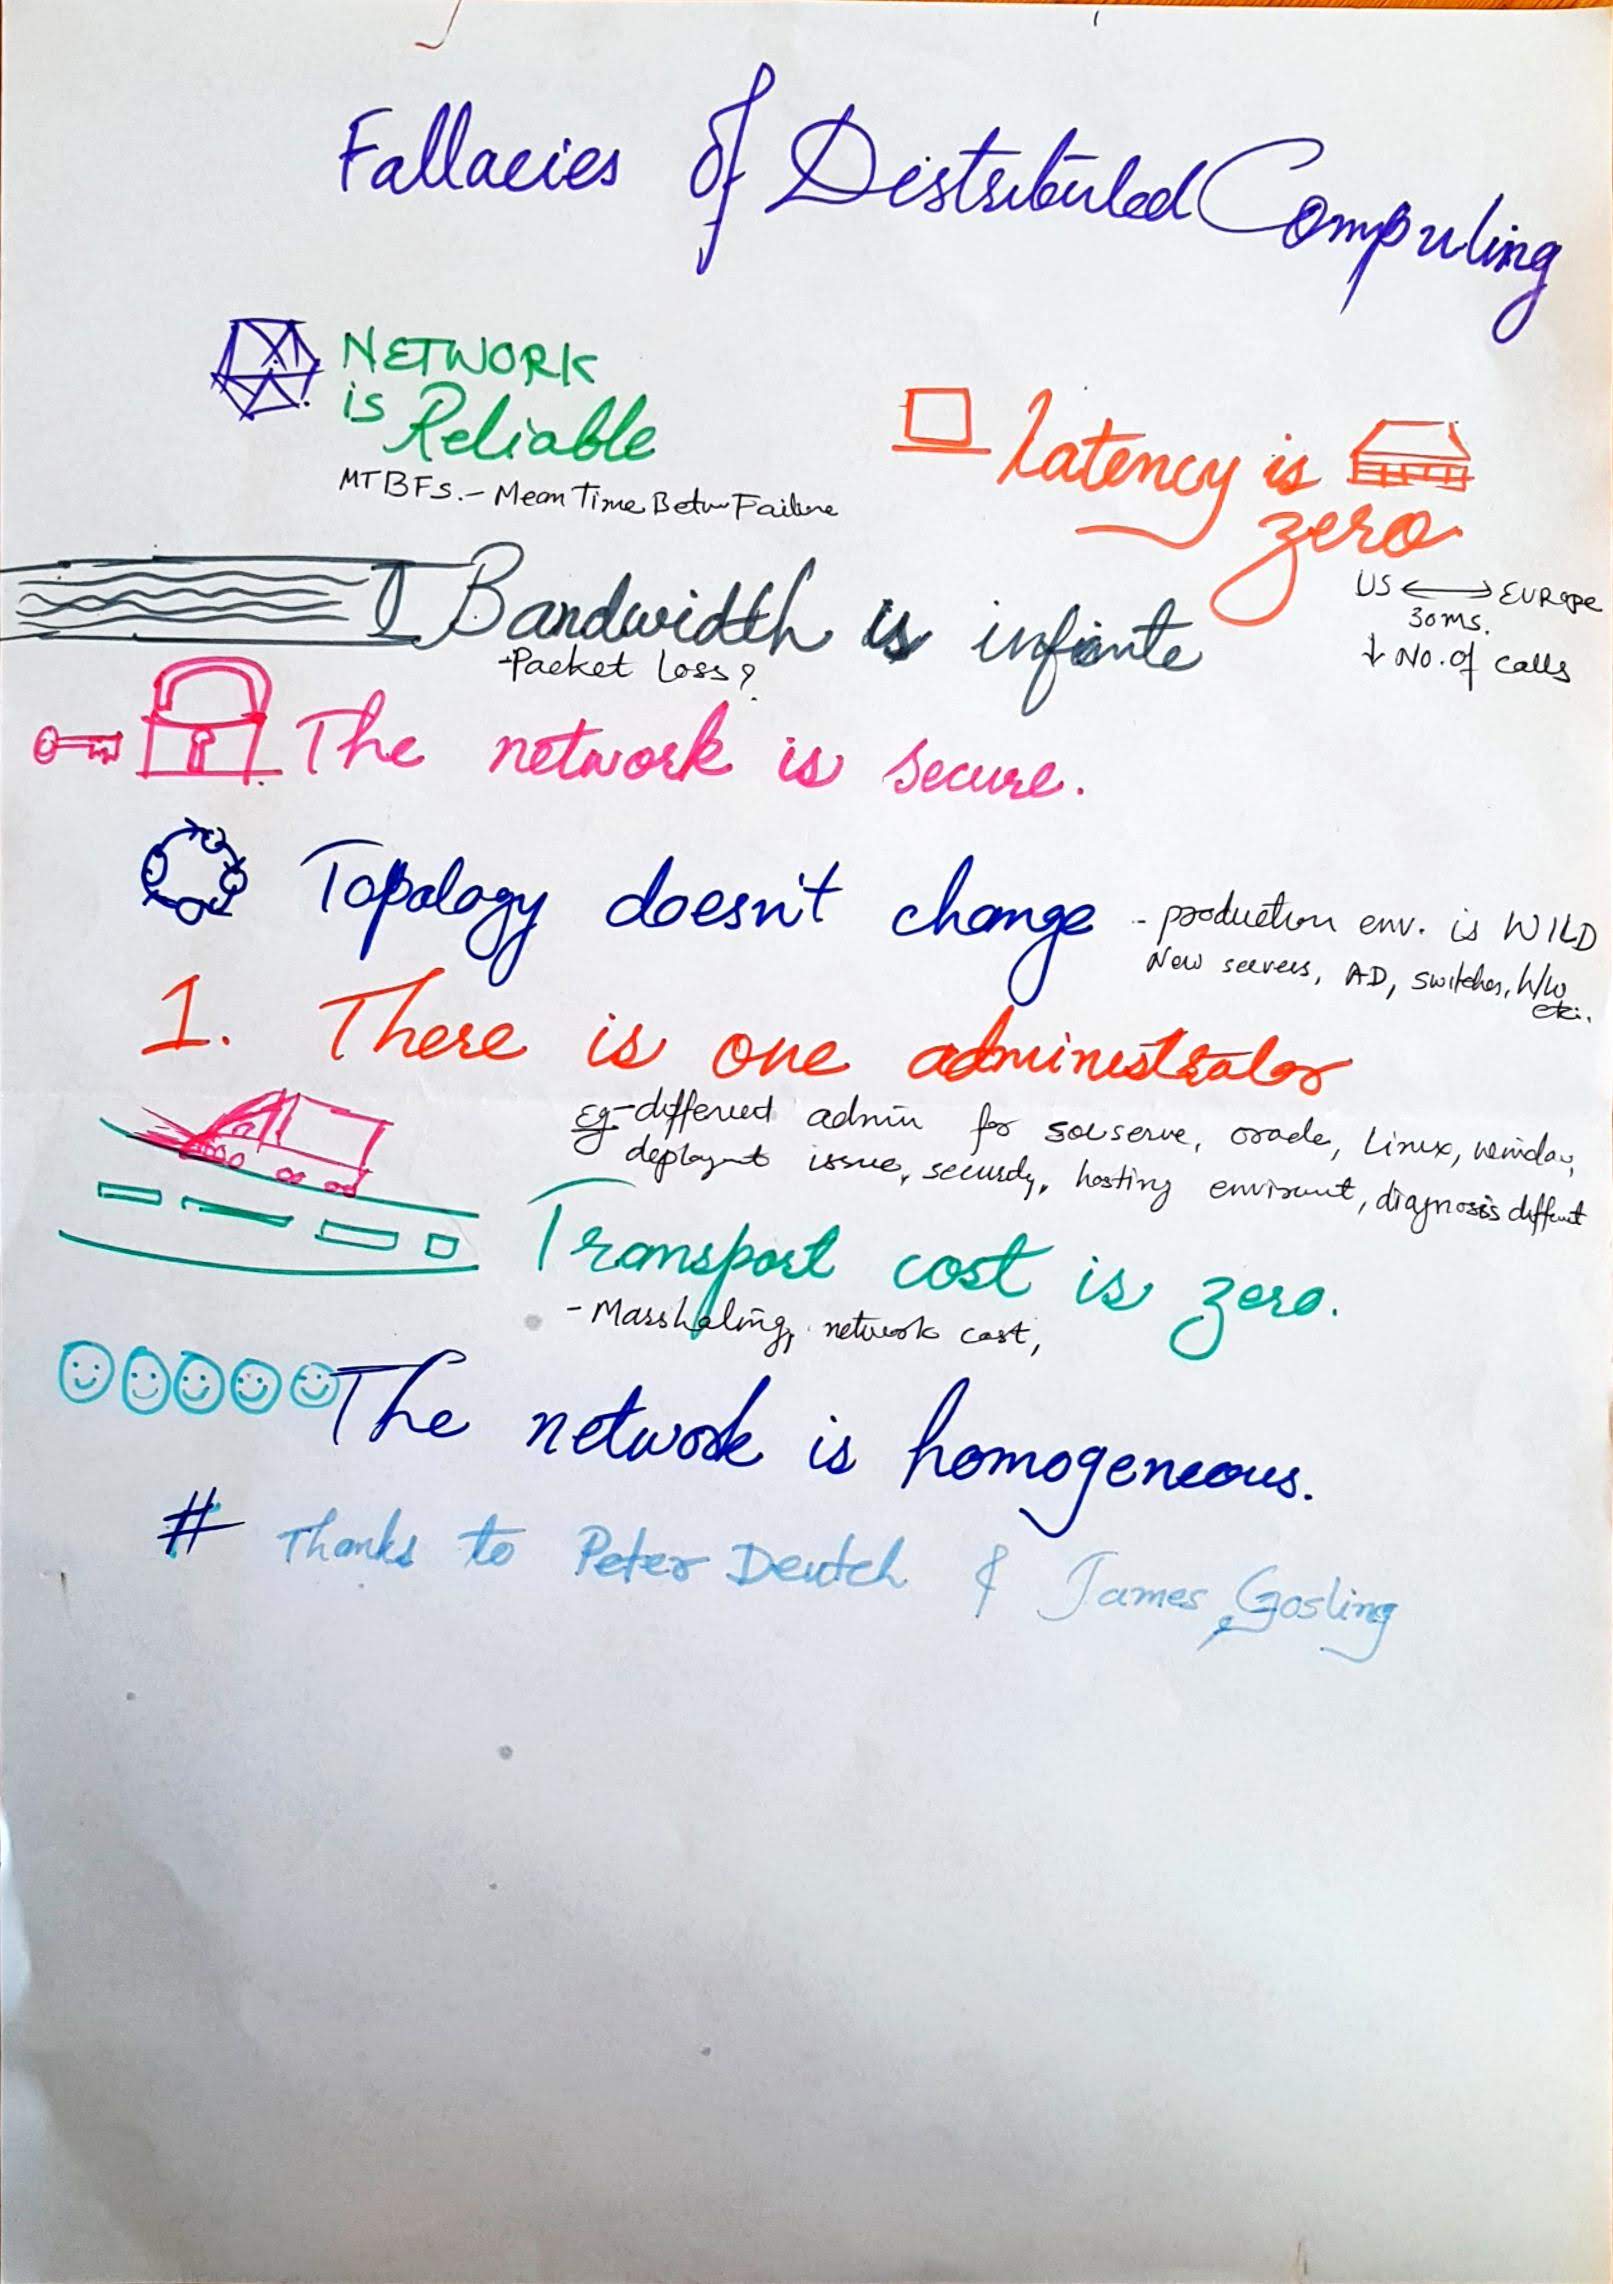 Fallacies of Distributed Computing
NETWORK
is Reliable
MTBFs. - Mean Time Betw Failure
Latency is
zero
US ⟷ EUROPE
30ms.
↓ No. of calls
Bandwidth is infinite
- Packet loss?
The network is secure.
Topology doesn't change
- production env. is WILD
New servers, AD, switches, h/w
etc.
1. There is one administrator
Eg - different admin for solserve, oracle, Linux, window,
deployment issue, security, hosting envirnment, diagnosis diffent
Transport cost is zero.
- Marshaling, network cost,
The network is homogeneous.
# Thanks to Peter Deutch & James Gosling